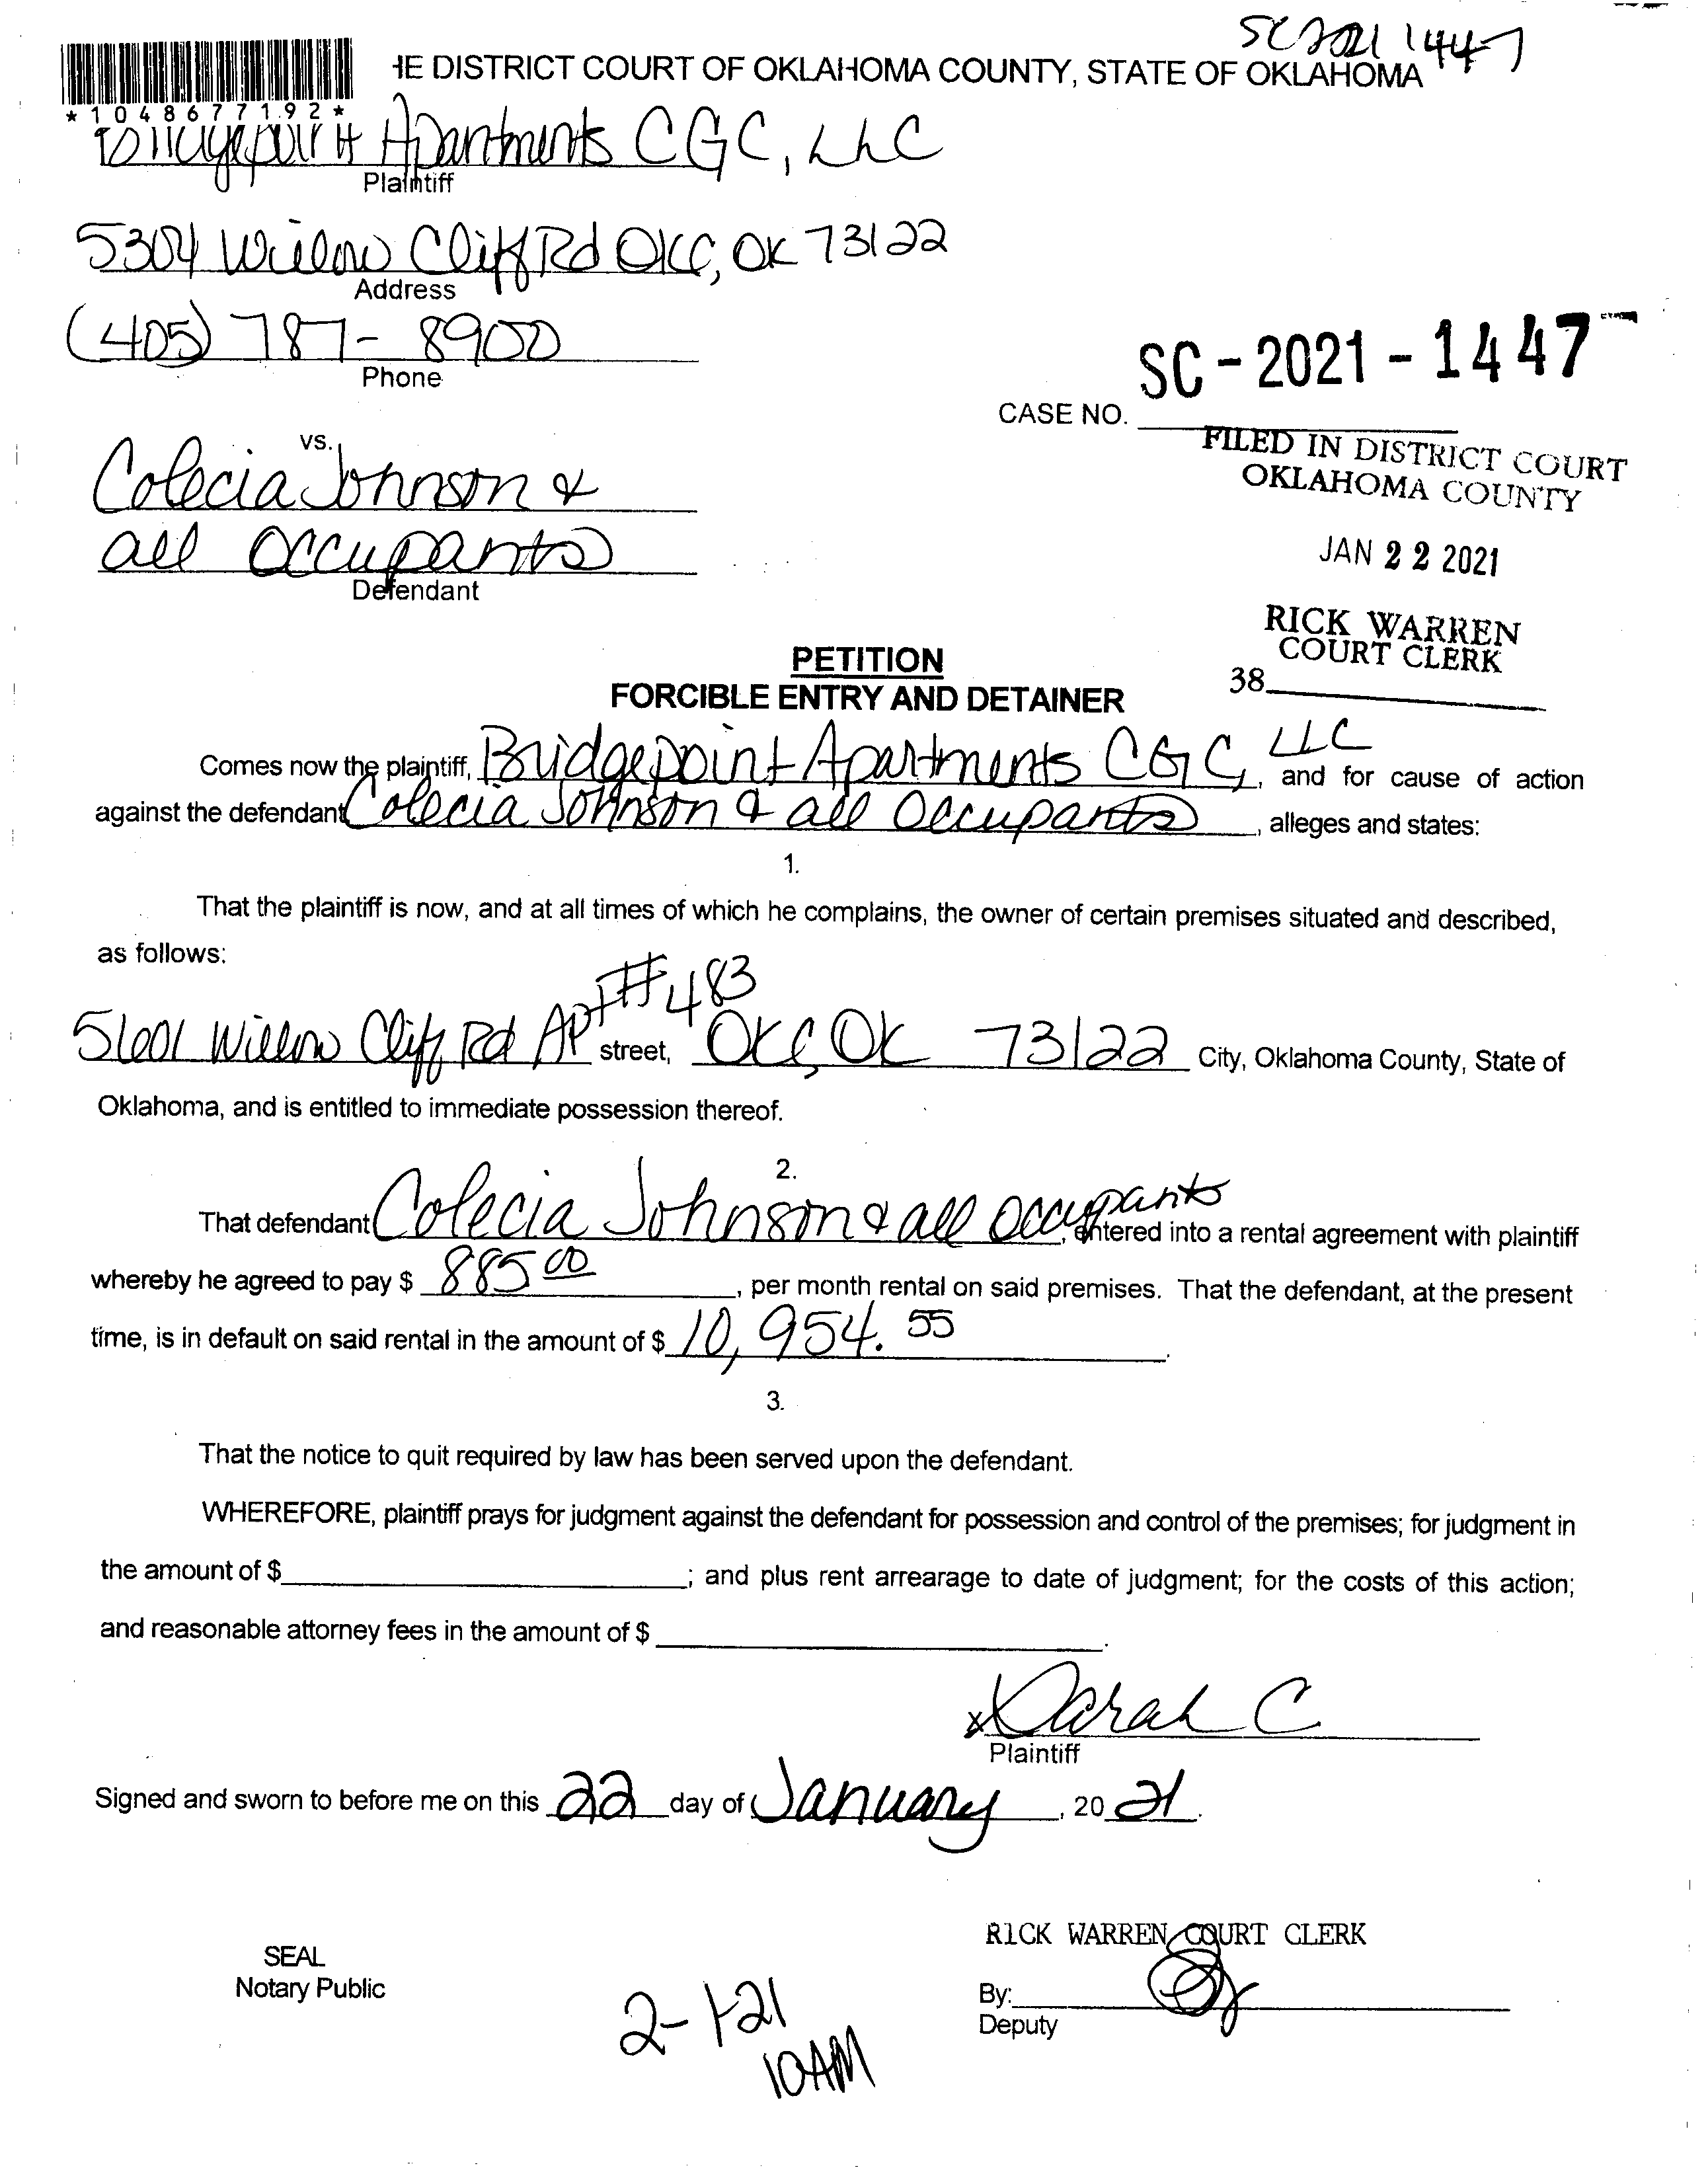 SC2021 1447
HE DISTRICT COURT OF OKLAHOMA COUNTY, STATE OF OKLAHOMA
*1048677192*
Bridgepoint Apartments CGC, LLC
Plaintiff
5304 Willow Cliff Rd OKC, OK 73122
Address
(405) 787-8900
Phone
SC-2021-1447
CASE NO.
FILED IN DISTRICT COURT
OKLAHOMA COUNTY
vs.
Colecia Johnson &
all Occupants
Defendant
JAN 22 2021
RICK WARREN
COURT CLERK
38
PETITION
FORCIBLE ENTRY AND DETAINER
Comes now the plaintiff, Bridgepoint Apartments CGC, LLC, and for cause of action
against the defendant Colecia Johnson & all Occupants, alleges and states:
1.
That the plaintiff is now, and at all times of which he complains, the owner of certain premises situated and described,
as follows:
5601 Willow Cliff Rd Apt #483 street, OKC, OK 73122 City, Oklahoma County, State of
Oklahoma, and is entitled to immediate possession thereof.
2.
That defendant Colecia Johnson & all occupants, entered into a rental agreement with plaintiff
whereby he agreed to pay $ 885.00, per month rental on said premises. That the defendant, at the present
time, is in default on said rental in the amount of $ 10,954.55.
3.
That the notice to quit required by law has been served upon the defendant.
WHEREFORE, plaintiff prays for judgment against the defendant for possession and control of the premises; for judgment in
the amount of $; and plus rent arrearage to date of judgment; for the costs of this action;
and reasonable attorney fees in the amount of $.
x Sarah C.
Plaintiff
Signed and sworn to before me on this 22 day of January, 20 21.
RICK WARREN COURT CLERK
SEAL
Notary Public
By:
Deputy
2-1-21
10AM